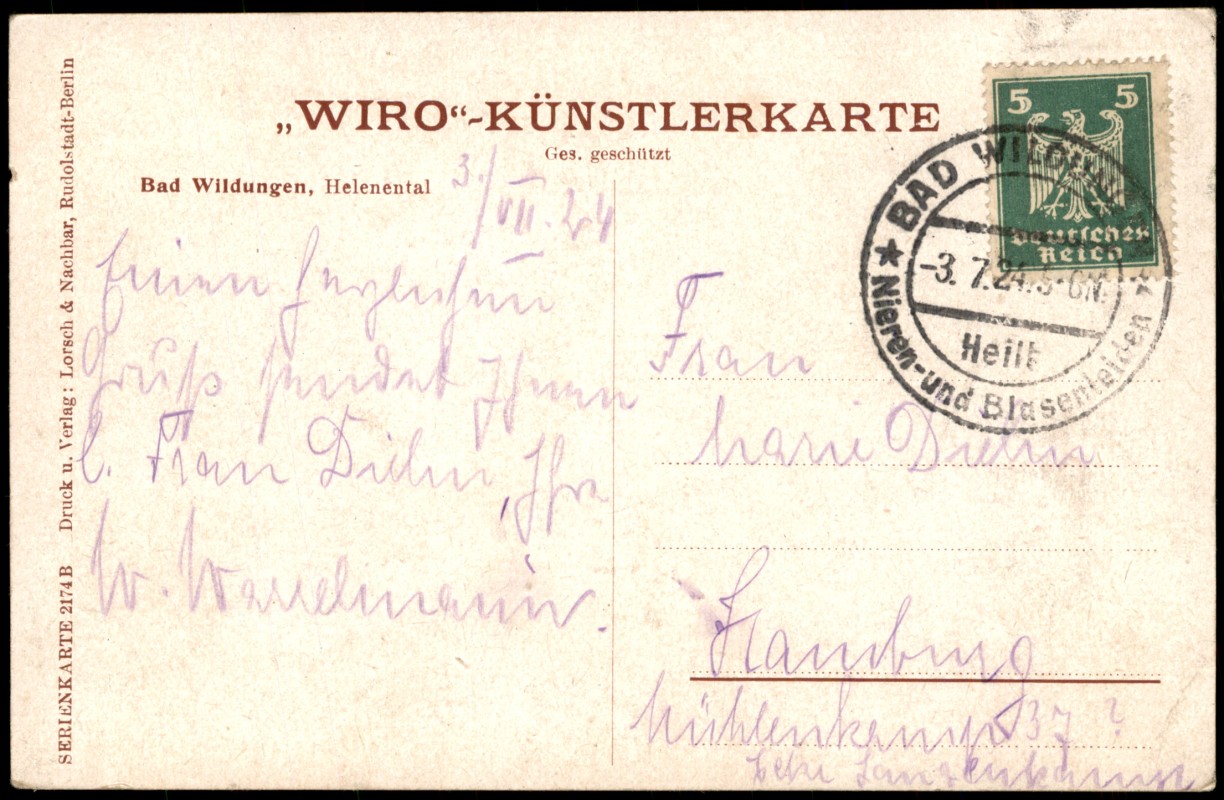 „WIRO“-KÜNSTLERKARTE
Ges. geschützt
Bad Wildungen, Helenental
3./VII. 24
Einen herzlichen
Gruß sendet Ihnen
l. Frau Diehn, Ihre
W.
SERIENKARTE 2174 B Druck u. Verlag: Lorsch & Nachbar, Rudolstadt-Berlin
5 5
Deutsches
Reich
BAD WILDUNGEN
-3. 7.24.5-6N.
Heilt
Nieren- und Blasenleiden
Frau
Marie Diehn
Hamburg
Mühlenkamp 37 ?
Ecke